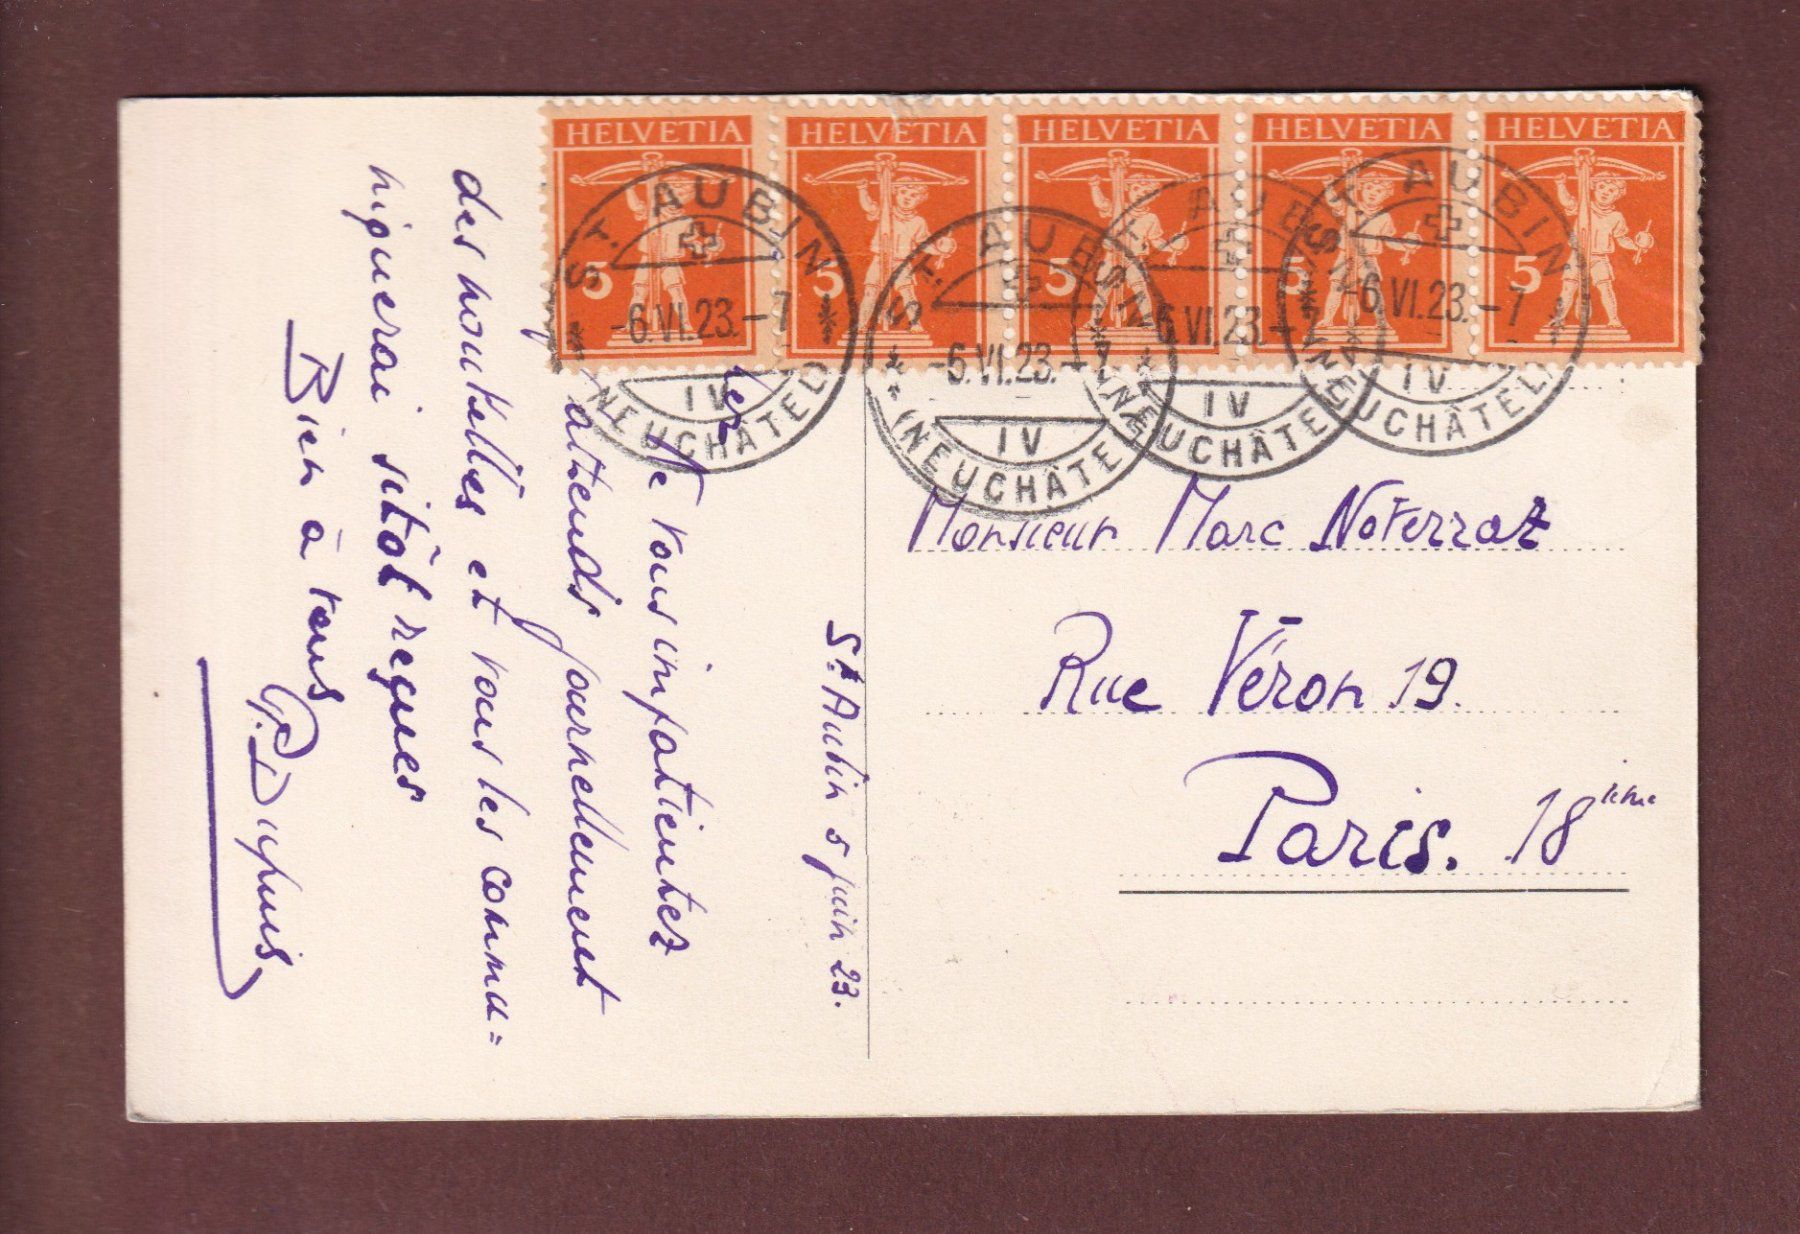 HELVETIA HELVETIA HELVETIA HELVETIA HELVETIA
5 5 5 5 5
ST. AUBIN
-6.VI.23.-7
IV
(NEUCHÂTEL)
ST. AUBIN
-6.VI.23.-7
IV
(NEUCHÂTEL)
ST. AUBIN
-6.VI.23.-7
IV
(NEUCHÂTEL)
ST. AUBIN
-6.VI.23.-7
IV
(NEUCHÂTEL)
St Aubin 5 juin 23.
Ne vous impatientez
attends journellement
des nouvelles et vous les commu=
niquerai sitôt reçues
Bien à vous
G. Dupuis
Monsieur Marc Noverraz
Rue Véron 19.
Paris. 18ième